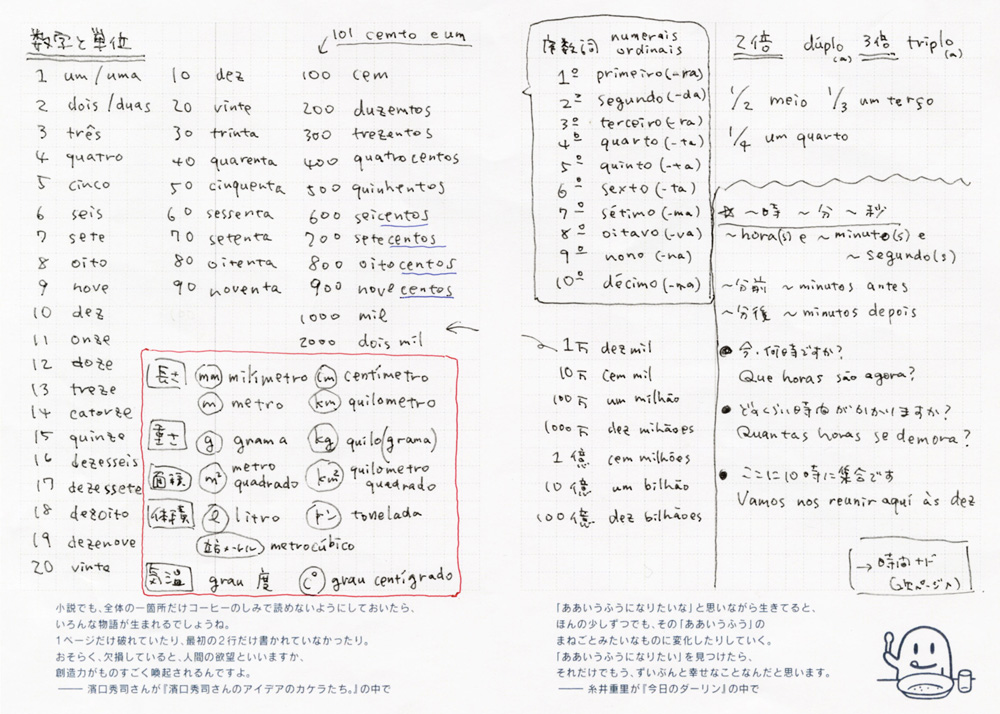 数字と単位
101 cemto e um
1 um/uma 10 dez 100 cem
2 dois/duas 20 vinte 200 duzemtos
3 três 30 trinta 300 trezentos
4 quatro 40 quarenta 400 quatrocentos
5 cinco 50 cinquenta 500 quinhentos
6 seis 60 sessenta 600 seicentos
7 sete 70 setenta 700 setecentos
8 oito 80 oitenta 800 oitocentos
9 nove 90 noventa 900 novecentos
10 dez 1000 mil
11 onze 2000 dois mil
12 doze
13 treze
14 catorze
15 quinze
16 dezesseis
17 dezessete
18 dezoito
19 dezenove
20 vinte
長さ mm milímetro cm centímetro
m metro km quilometro
重さ g grama kg quilo(grama)
面積 m² metro quadrado km² quilometro quadrado
体積 ℓ litro トン tonelada
立方メートル metrocúbico
気温 grau 度 C° grau centígrado
小説でも、全体の一箇所だけコーヒーのしみで読めないようにしておいたら、
いろんな物語が生まれるでしょうね。
1ページだけ破れていたり、最初の2行だけ書かれていなかったり。
おそらく、欠損していると、人間の欲望といいますか、
創造力がものすごく喚起されるんですよ。
―― 濱口秀司さんが『濱口秀司さんのアイデアのカケラたち。』の中で
序数詞 numerais ordinais
1º primeiro(-ra)
2º segundo(-da)
3º terceiro(-ra)
4º quarto(-ta)
5º quinto(-ta)
6º sexto(-ta)
7º sétimo(-ma)
8º oitavo(-va)
9º nono(-na)
10º décimo(-ma)
1万 dez mil
10万 cem mil
100万 um milhão
1000万 dez mihões
1億 cem milhões
10億 um bilhão
100億 dez bilhões
2倍 dúplo(a) 3倍 triplo(a)
1/2 meio 1/3 um terço
1/4 um quarto
☆ ~時 ~分 ~秒
~hora(s) e ~minuto(s) e
~segundo(s)
~分前 ~minutos antes
~分後 ~minutos depois
● 今、何時ですか?
Que horas são agora?
● どれくらい時間がかかりますか?
Quantas horas se demora?
● ここに10時に集合です
Vamos nos reunir aquí às dez
「ああいうふうになりたいな」と思いながら生きてると、
ほんの少しずつでも、その「ああいうふう」の
まねごとみたいなものに変化したりしていく。
「ああいうふうになりたい」を見つけたら、
それだけでもう、ずいぶんと幸せなことなんだと思います。
―― 糸井重里が『今日のダーリン』の中で